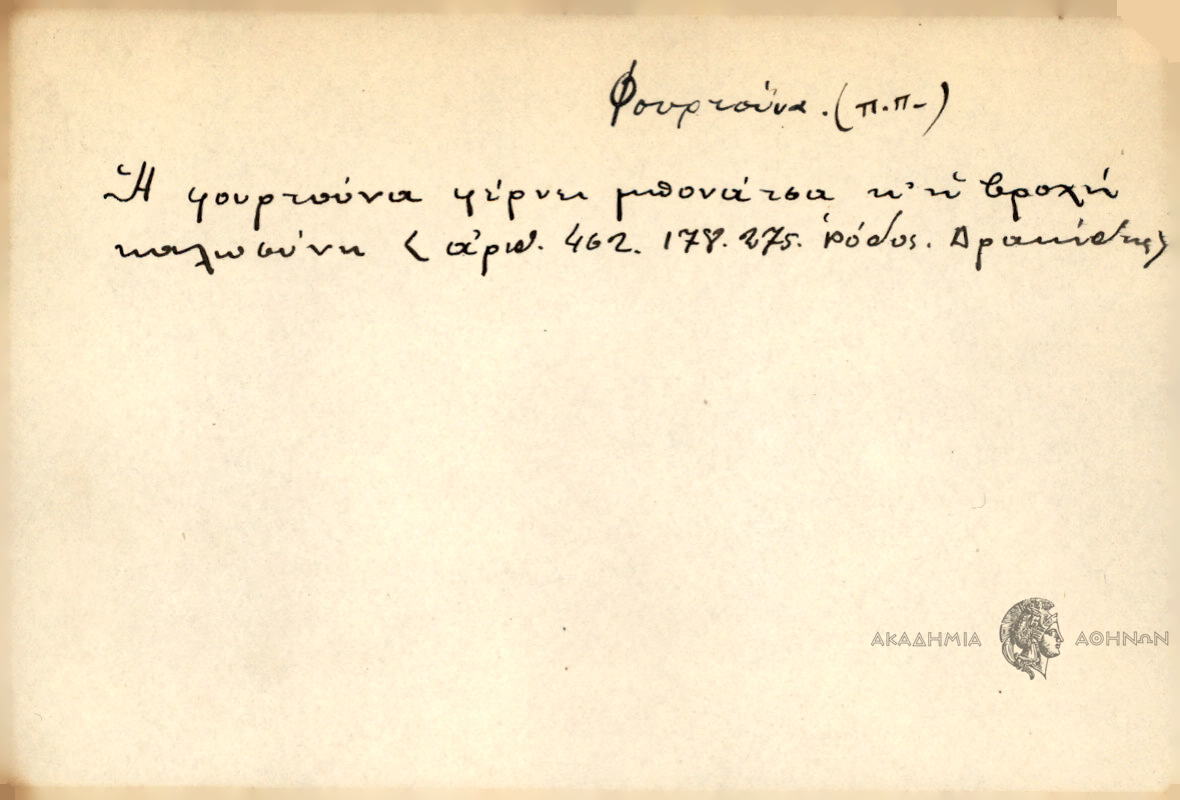 Φουρτούνα. (π.π-)
Ἡ φουρτούνα φέρνει μπονάτσα κ' ἡ βροχή
καλωσύνη < ἀριθ. 462. 178. 275. Ρόδος. Δρακίδης>
ΑΚΑΔΗΜΙΑ ΑΘΗΝΩΝ